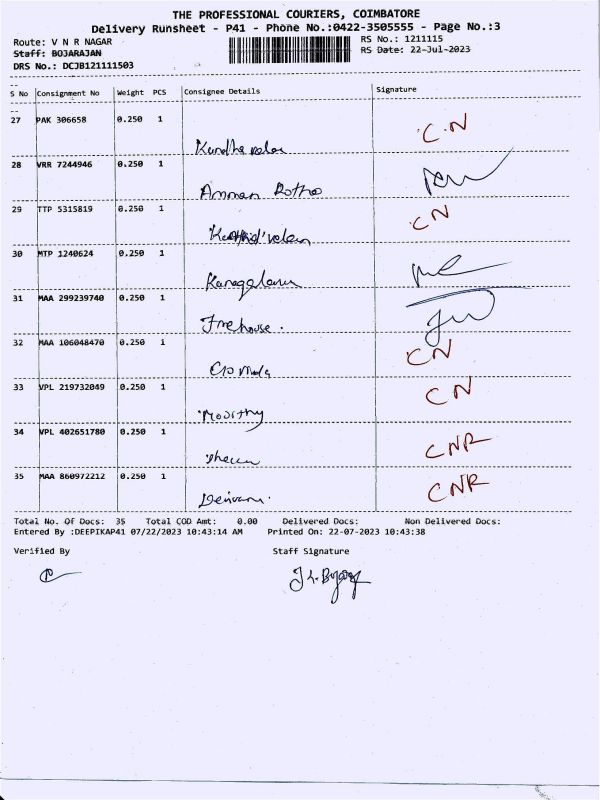 THE PROFESSIONAL COURIERS, COIMBATORE
Delivery Runsheet - P41 - Phone No.:0422-3505555 - Page No.:3
Route: V N R NAGAR RS No.: 1211115
Staff: BOJARAJAN RS Date: 22-Jul-2023
DRS No.: DCJB121111503
S No Consignment No Weight PCS Consignee Details Signature
27 PAK 306658 0.250 1 C.N
28 VRR 7244946 0.250 1
Amman
29 TTP 5315819 0.250 1 CN
30 MTP 1240624 0.250 1
31 MAA 299239740 0.250 1
Firehouse.
32 MAA 106048470 0.250 1 CN
33 VPL 219732049 0.250 1 CN
Moorthy
34 VPL 402651780 0.250 1 CNR
35 MAA 860972212 0.250 1 CNR
Total No. Of Docs: 35 Total COD Amt: 0.00 Delivered Docs: Non Delivered Docs:
Entered By :DEEPIKAP41 07/22/2023 10:43:14 AM Printed On: 22-07-2023 10:43:38
Verified By Staff Signature